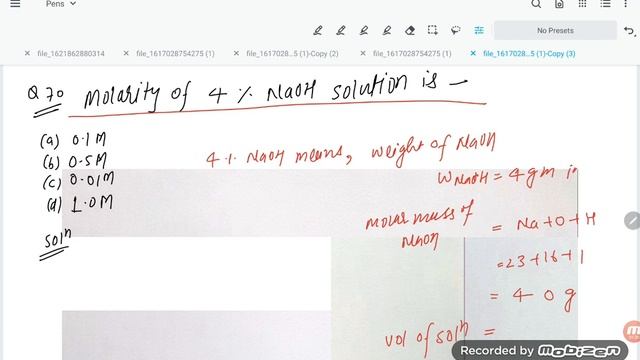 Pens
No Presets
file_1621862880314
file_1617028754275 (1)
file_1617028...5 (1)-Copy (2)
file_1617028754275 (1)
file_1617028...5 (1)-Copy (3)
Q 70 Molarity of 4 % NaOH solution is —
(a) 0.1 M
(b) 0.5 M
(c) 0.01 M
(d) 1.0 M
Solⁿ
4 % NaOH means, weight of NaOH
W NaOH = 4 gm i
molar mass of NaOH = Na + O + H
= 23 + 16 + 1
= 4 0 g
vol of solⁿ =
Recorded by
MOBIZEN